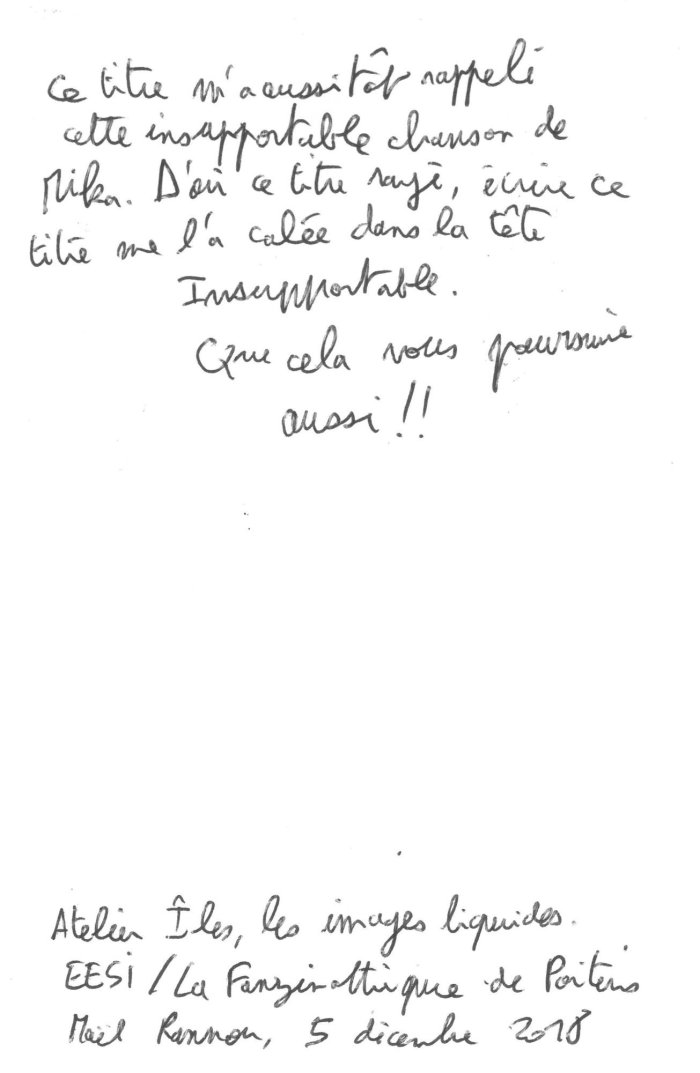 Ce titre m'a aussitôt rappelé
cette insupportable chanson de
Mika. D'où ce titre rayé, écrire ce
titre me l'a calée dans la tête
Insupportable.
Que cela vous poursuive
aussi !!
Atelier Îles, les images liquides.
EESI / La Fanzinothèque de Poitiers
Maël Rannou, 5 décembre 2018